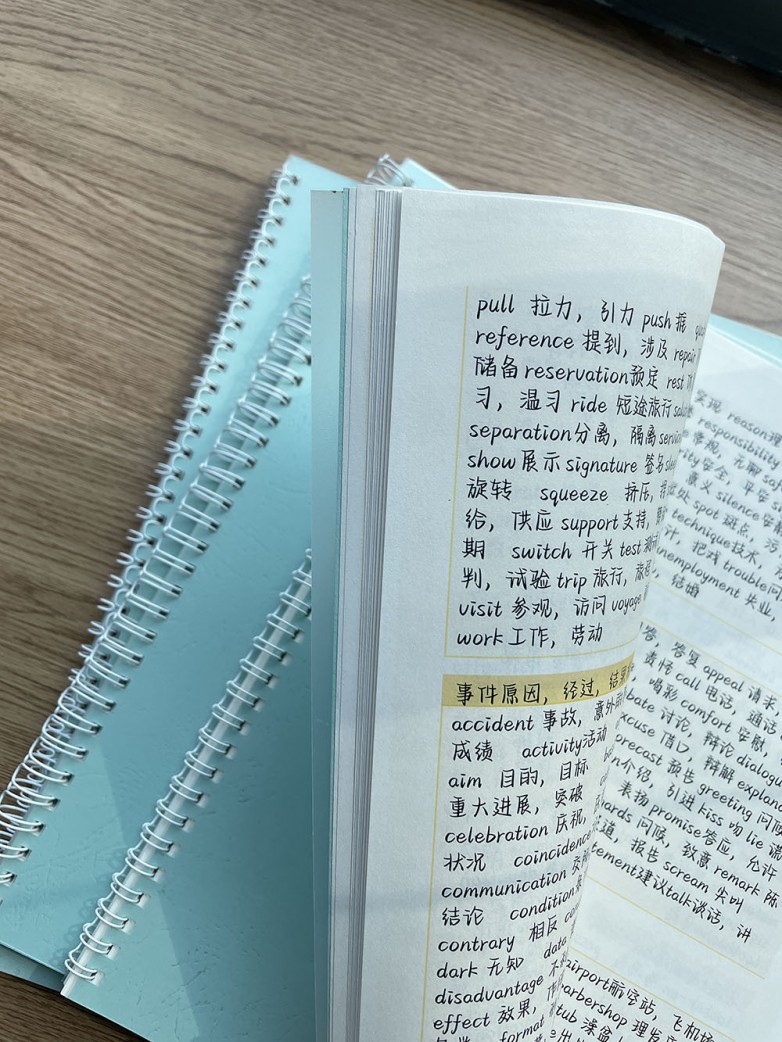 pull 拉力，引力 push 推
reference 提到，涉及 repair
储备 reservation预定 rest
习，温习 ride 短途旅行
separation分离，隔离
show展示 signature 签名
旋转 squeeze 挤压，
给，供应 support支持，
期 switch 开关 test测试
判，试验 trip 旅行，
visit 参观，访问 voyage
work工作，劳动
事件原因，经过，结果
accident 事故，意外
成绩 activity活动
aim 目的，目标
重大进展，突破
celebration 庆祝，
状况 coincidence
communication
结论 condition
contrary 相反
dark 无知 data
disadvantage
effect 效果，
format
实现 reason理
responsibility
常规，无聊
安全，平安
意义 silence
处 spot 斑点，污
technique技术，
计，把戏 trouble问
unemployment 失业，
结婚
答，答复 appeal 请求
责怪 call 电话，通话
喝彩 comfort 安慰，
讨论，辩论 dialogue
excuse 借口，辩解
forecast 预告 greeting 问候
介绍，引进 kiss 吻 lie 谎
表扬 promise答应，允许
问候，致意 remark 陈
报告 scream 尖叫
建议talk谈话，讲
airport航空站，飞机场
barbershop 理发
tub 澡盆